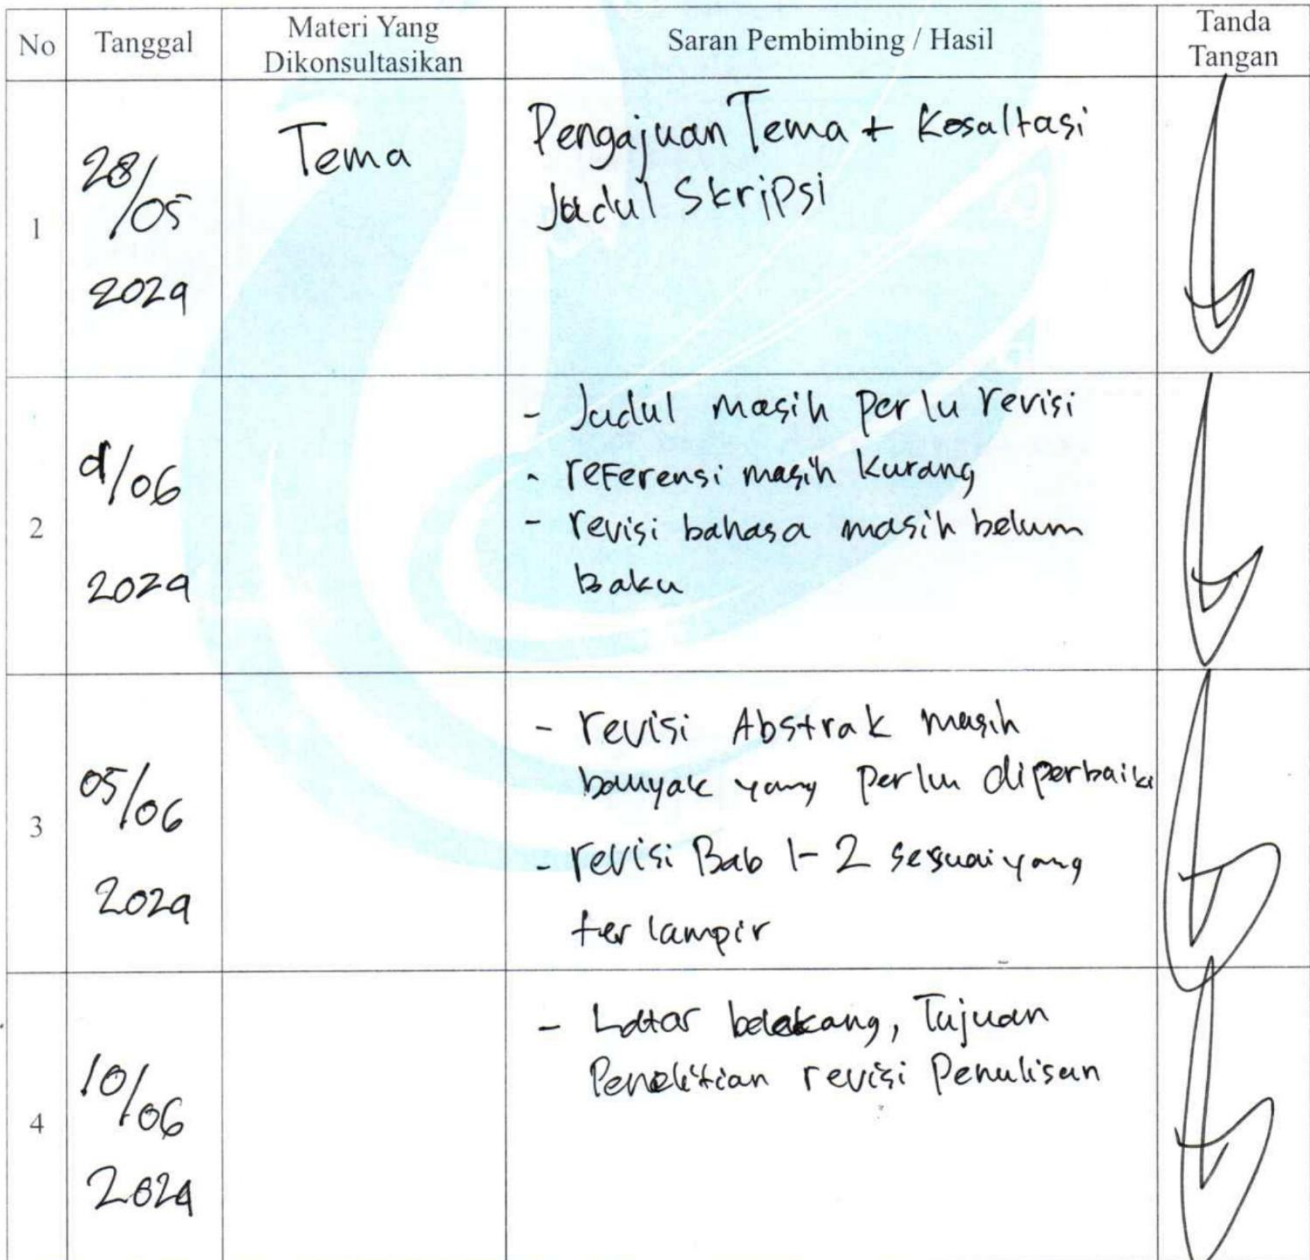 No Tanggal Materi Yang Dikonsultasikan Saran Pembimbing / Hasil Tanda Tangan
1
28/05
2024
Tema
Pengajuan Tema + Kosaltasi
Judul Skripsi
2
/06
2024
- Judul masih perlu revisi
- referensi masih kurang
- revisi bahasa masih belum
baku
3
05/06
2024
- revisi Abstrak masih
banyak yang perlu diperbaiki
- revisi Bab 1-2 sesuai yang
terlampir
4
10/06
2024
- Latar belakang, Tujuan
Penelitian revisi Penulisan